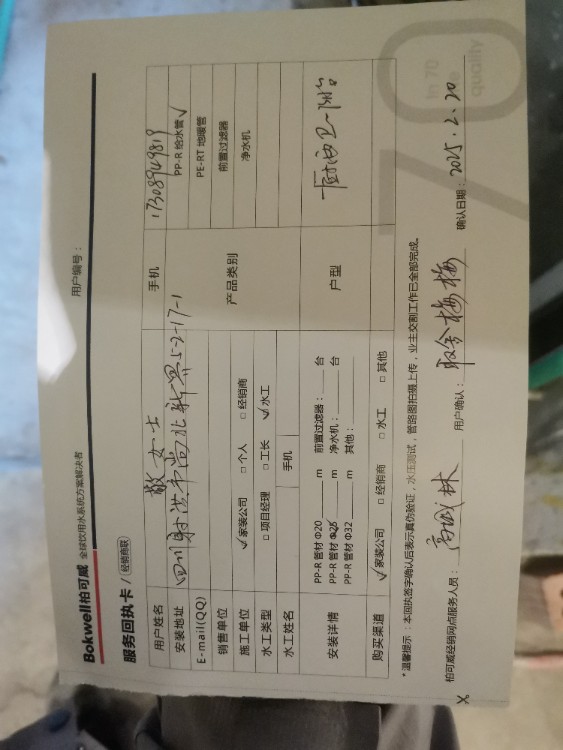 Bokwell柏可威 全球饮用水系统方案解决者
用户编号：
服务回执卡 / 经销商联
in 70
quality
用户姓名 敬女士 手机 17308949819
安装地址 四川射洪市尚北新景5-2-17-1 产品类别 PP-R 给水管 ✓
E-mail(QQ) PE-RT 地暖管
销售单位 前置过滤器
施工单位 ✓家装公司 □ 个人 □ 经销商 净水机
水工类型 □ 项目经理 □ 工长 ✓水工
水工姓名 手机
安装详情 PP-R 管材 Φ20 ____ m 前置过滤器：____ 台 户型
PP-R 管材 Φ25 ____ m 净水机：____ 台
PP-R 管材 Φ32 ____ m 其他：
购买渠道 ✓家装公司 □ 经销商 □ 水工 □ 其他
*温馨提示：本回执签字确认后表示真伪验证，水压测试，管路图拍摄上传，业主交割工作已全部完成。
柏可威经销网点服务人员： 用户确认： 梅梅 确认日期：2025.2.20